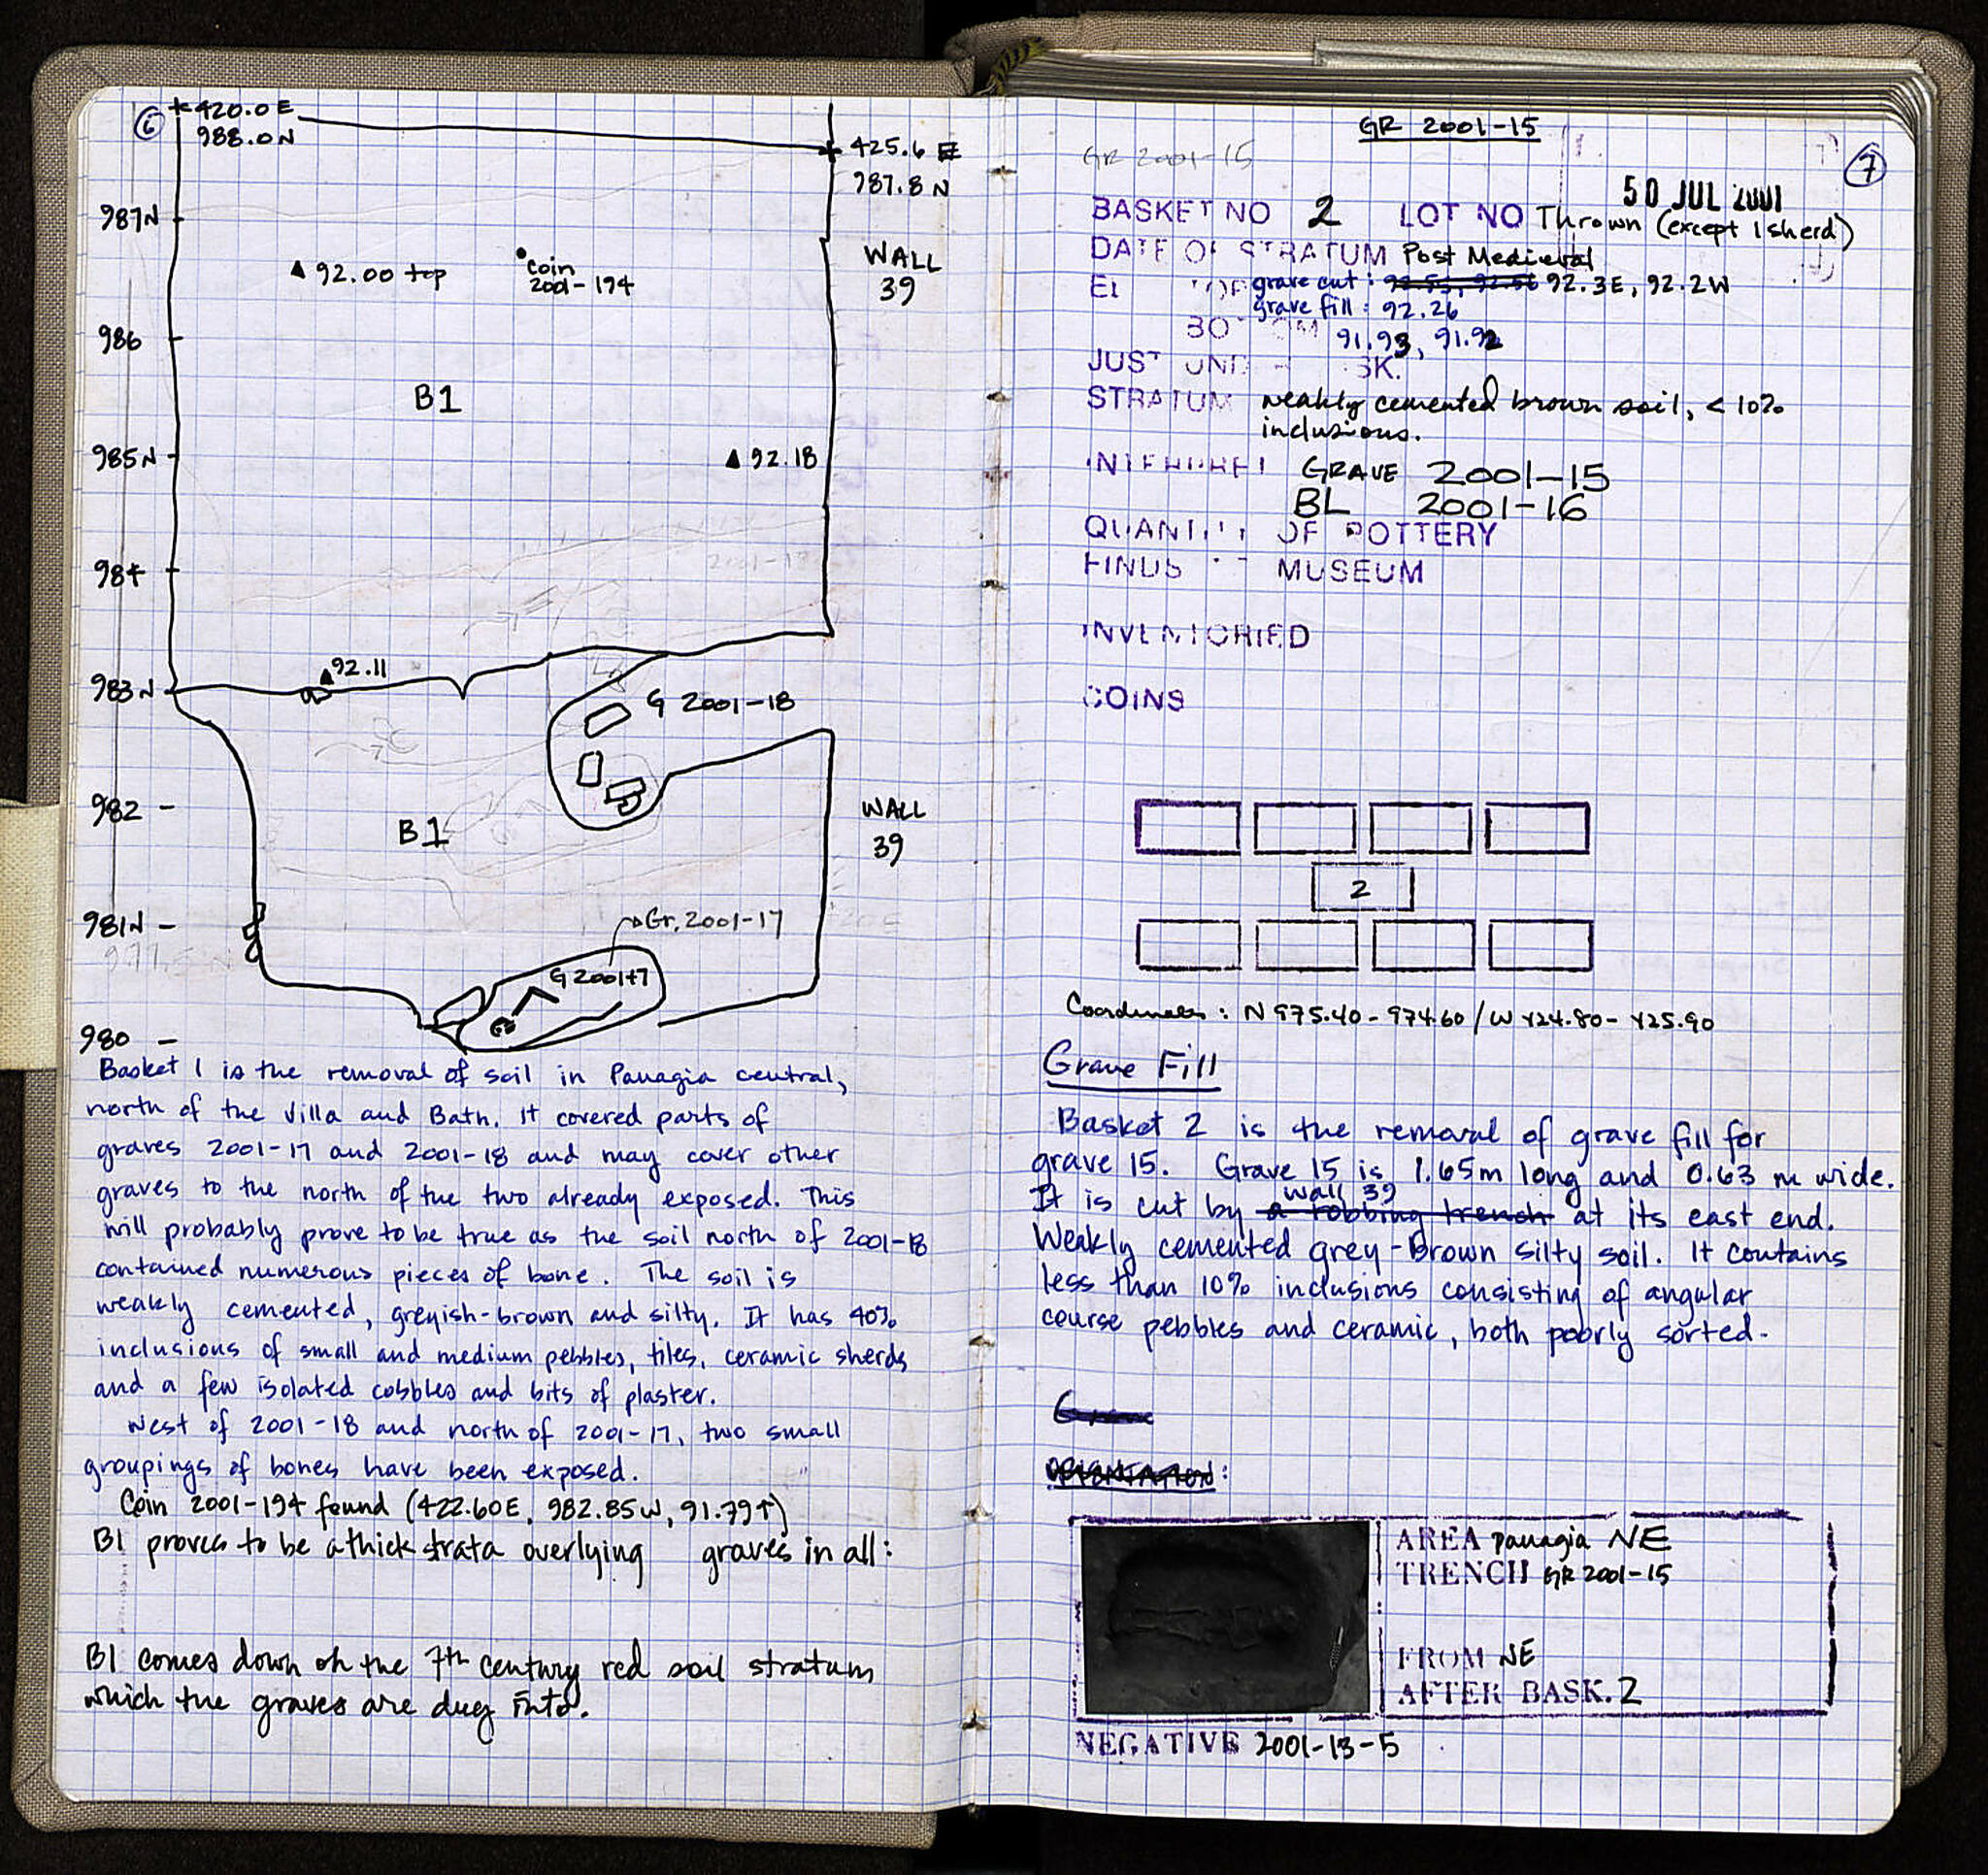 6
420.0 E
988.0 N
425.6 E
987.8 N
987N
WALL
39
92.00 top
coin
2001-194
986
B1
985N
92.18
984
92.11
983N
G 2001-18
982
WALL
39
B1
981N
Gr. 2001-17
G 2001-17
980
Basket 1 is the removal of soil in Panagia central,
north of the Villa and Bath. It covered parts of
graves 2001-17 and 2001-18 and may cover other
graves to the north of the two already exposed. This
will probably prove to be true as the soil north of 2001-18
contained numerous pieces of bone. The soil is
weakly cemented, greyish-brown and silty. It has 40%
inclusions of small and medium pebbles, tiles, ceramic sherds
and a few isolated cobbles and bits of plaster.
West of 2001-18 and north of 2001-17, two small
groupings of bones have been exposed.
Coin 2001-194 found (422.60E, 982.85W, 91.79↑)
B1 proves to be a thick strata overlying graves in all:
B1 comes down on the 7th century red soil stratum
which the graves are dug into.
GR 2001-15
7
GR 2001-15
50 JUL 2001
BASKET NO 2 LOT NO Thrown (except 1 sherd)
DATE OF STRATUM Post Medieval
grave cut: 92.3E, 92.2W
grave fill: 92.26
BOTTOM 91.93, 91.92
JUST UND BSK.
STRATUM weakly cemented brown soil, <10%
inclusions.
INTERPRET GRAVE 2001-15
BL 2001-16
QUANTITY OF POTTERY
FINDS MUSEUM
INVENTORIED
COINS
2
Coordinates: N 975.40-974.60 / W 424.80-425.90
Grave Fill
Basket 2 is the removal of grave fill for
grave 15. Grave 15 is 1.65m long and 0.63 m wide.
It is cut by a robbing trench wall 39 at its east end.
Weakly cemented grey-Brown silty soil. It contains
less than 10% inclusions consisting of angular
course pebbles and ceramic, both poorly sorted.
AREA Panagia NE
TRENCH GR 2001-15
FROM NE
AFTER BASK. 2
NEGATIVE 2001-13-5